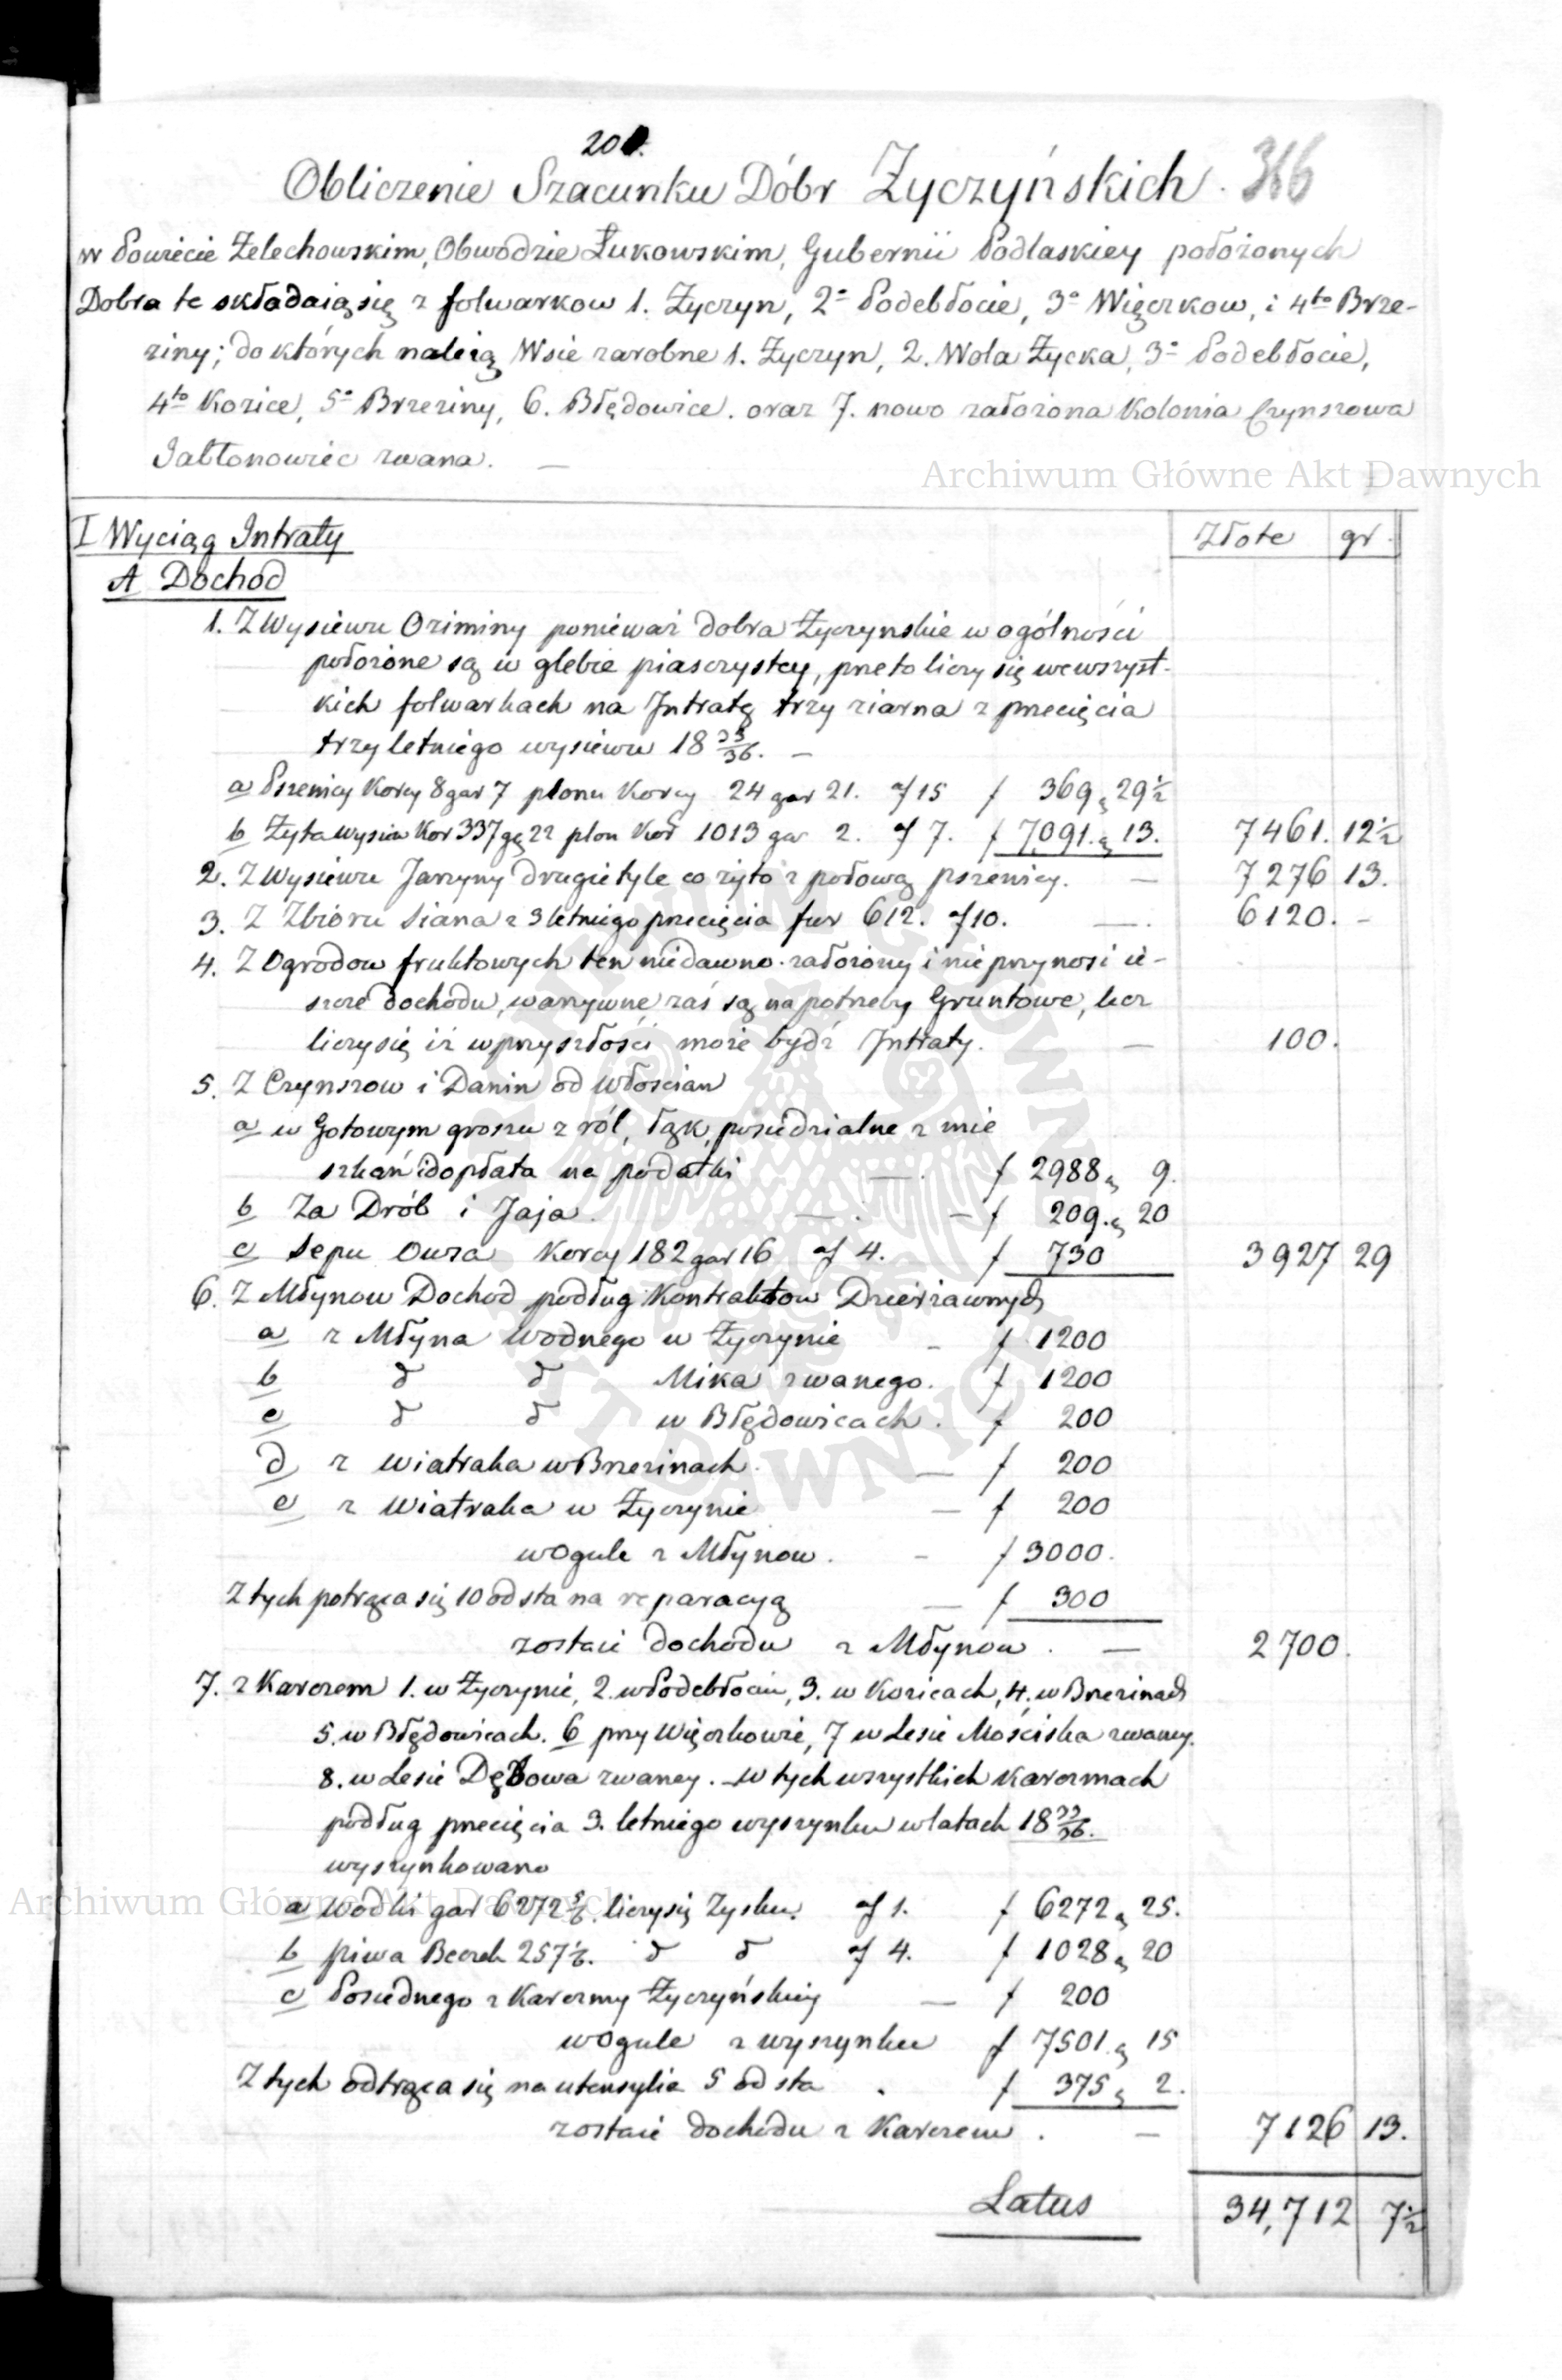 200.
Obliczenie Szacunku Dóbr Życzyńskich. 366
w Powiecie Żelechowskim, Obwodzie Łukowskim, Gubernii Podlaskiey położonych
Dobra te składaią się z folwarkow 1. Życzyn, 2° Podebłocie, 3° Więczkow, i 4to Brze-
ziny; do których należą Wsie zarobne 1. Życzyn, 2. Wola Życka, 3° Podebłocie,
4to Kozice, 5° Brzeziny, 6. Błędowice. oraz 7. nowo założona Kolonia Czynszowa
Jabłonowiec zwana. —
Archiwum Główne Akt Dawnych
I Wyciąg Intraty
Złote gr.
A Dochod
1. Z Wysiewu Oziminy ponieważ dobra Życzynskie w ogólności
położone są w glebie piasczystey, przeto liczy się we wszyst-
kich folwarkach na Intratę trzy ziarna z przecięcia
trzyletniego wysiewu 18 33/36. —
a Pszenicy Korcy 8 gar 7 plonu Korcy 24 gar 21. af 15 f 369 g 29 1/2
b Żyta wysiew Kor 337 gę 22 plon Kor 1013 gar 2. af 7. f 7,091. g 13. 7461. 12 1/2
2. Z Wysiewu Jarzyny drugie tyle co żyto z połową pszenicy. — 7276 13.
3. Z Zbioru Siana z 3 letniego przecięcia fur 612. af 10. —. 6120. -
4. Z Ogrodow fruktowych ten niedawno założony i nie przynosi ie-
szcze dochodu, warzywne zaś są na potrzeby Gruntowe, lecz
liczy się iż w przyszłości może bydź Intraty. — 100.
5. Z Czynszow i Danin od Włoscian
a w Gotowym groszu z ról, łąk, posiedzialne z mie
szkań i dopłata na podatki —. f 2988 g 9.
b Za Drób i Jaja. —. - f 209. g 20
c Sepu Owsa Korcy 182 gar 16 af 4. f 730 3927 29
6. Z Młynow Dochod podług Kontraktow Dzierżawnych
a z Młyna Wodnego w Życzynie - f 1200
b d d Mika zwanego. f 1200
c d d w Błędowicach. f 200
d z Wiatraka w Brzezinach. — f 200
e z Wiatraka w Życzynie — f 200
wogule z Młynow. - f 3000.
Z tych potrąca się 10 od sta na reparacyą — f 300
zostaie dochodu z Młynow. — 2700.
7. z Karczem 1. w Życzynie, 2. w Podebłociu, 3. w Kozicach, 4. w Brzezinach
5. w Błędowicach. 6 przy Więczkowie, 7 w Lesie Mościska zwaney.
8. w Lesie Dębowa zwaney. — w tych wszystkich Karczmach
podług przecięcia 3. letniego wyszynku w latach 18 33/36.
wyszynkowano
Archiwum Główne Akt Dawnych
a Wodki gar 6272 5/6. liczy się Zysku. af 1. f 6272 g 25.
b piwa Beczek 257 1/6. d d af 4. f 1028 g 20
c Posiednego z Karczmy Życzyńskiey — f 200
wogule z wyszynku f 7501. g 15
Z tych odtrąca się na utensylia 5 od sta. f 375 g 2.
zostaie dochodu z Karczem. — 7126 13.
Latus 34,712 7 1/2